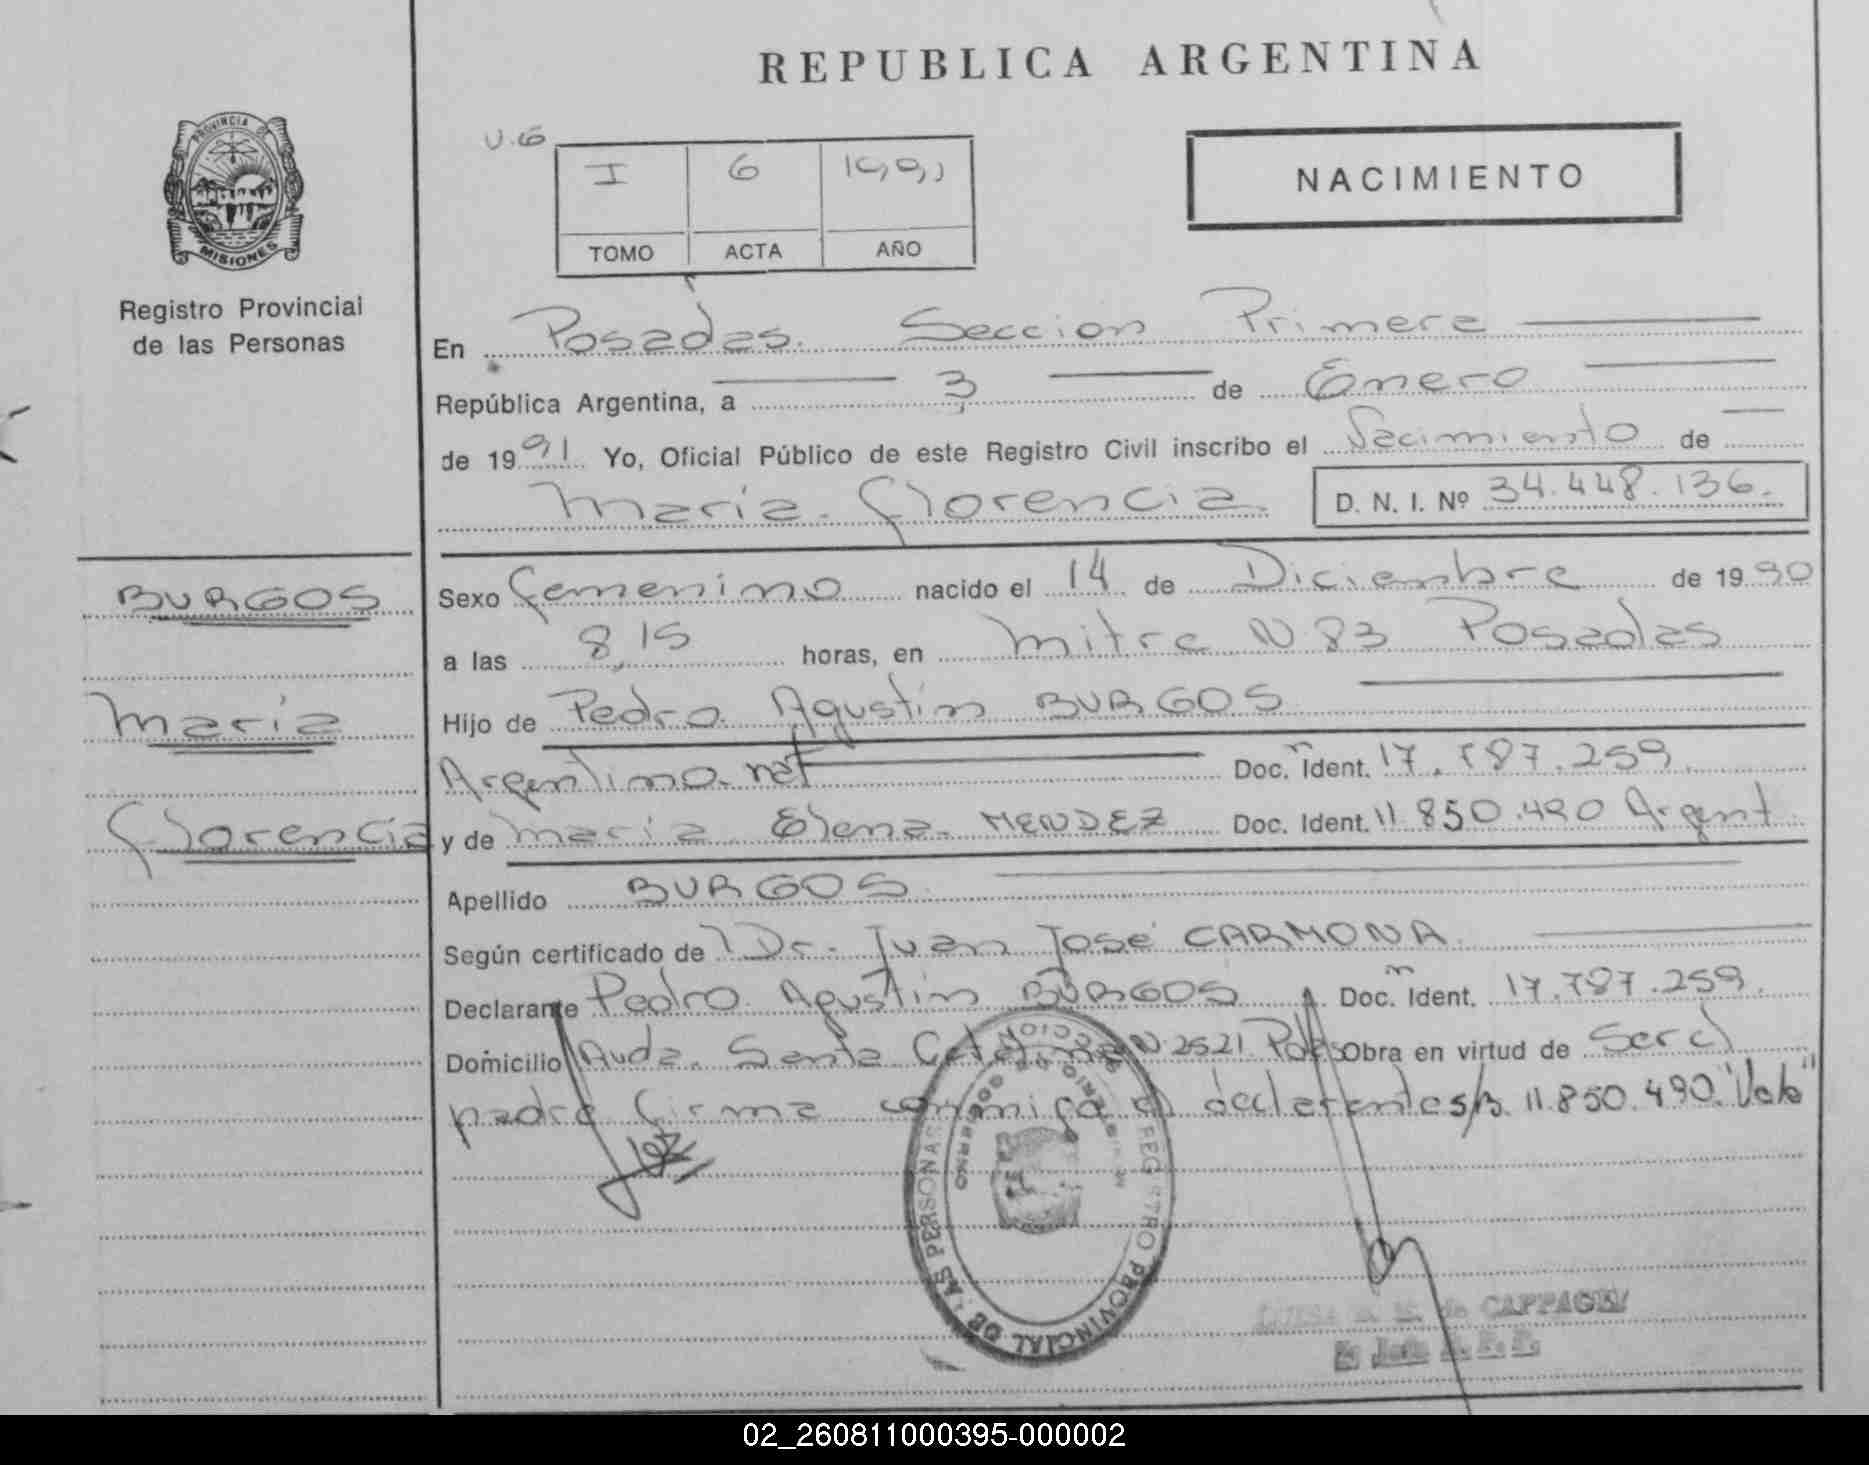 REPUBLICA ARGENTINA
PROVINCIA DE
MISIONES
Registro Provincial
de las Personas
U.G
I 6
TOMO ACTA AÑO
NACIMIENTO
En Posadas. Seccion Primera
República Argentina, a 3 de Enero
de 1991 Yo, Oficial Público de este Registro Civil inscribo el Nacimiento de
Maria Florencia D. N. I. Nº 34.448.136.
BURGOS
Maria
Florencia
Sexo Femenino nacido el 14 de Diciembre de 1990
a las 8,15 horas, en Mitre N 83 Posadas
Hijo de Pedro Agustin BURGOS
Argentino nat Doc. Ident. 17.787.259
y de Maria Elena MENDEZ Doc. Ident. 11.850.490 Argent.
Apellido BURGOS
Según certificado de Dr. Juan José CARMONA
Declarante Pedro Agustin BURGOS Doc. Ident. 17.787.259.
Domicilio Avda. Santa Catalina N 2521 Pdas Obra en virtud de Ser el
padre firma conmigo el declarante s/b 11.850.490. "Vale"
REGISTRO PROVINCIAL DE LAS PERSONAS
de CAPPAGLI
02_260811000395-000002